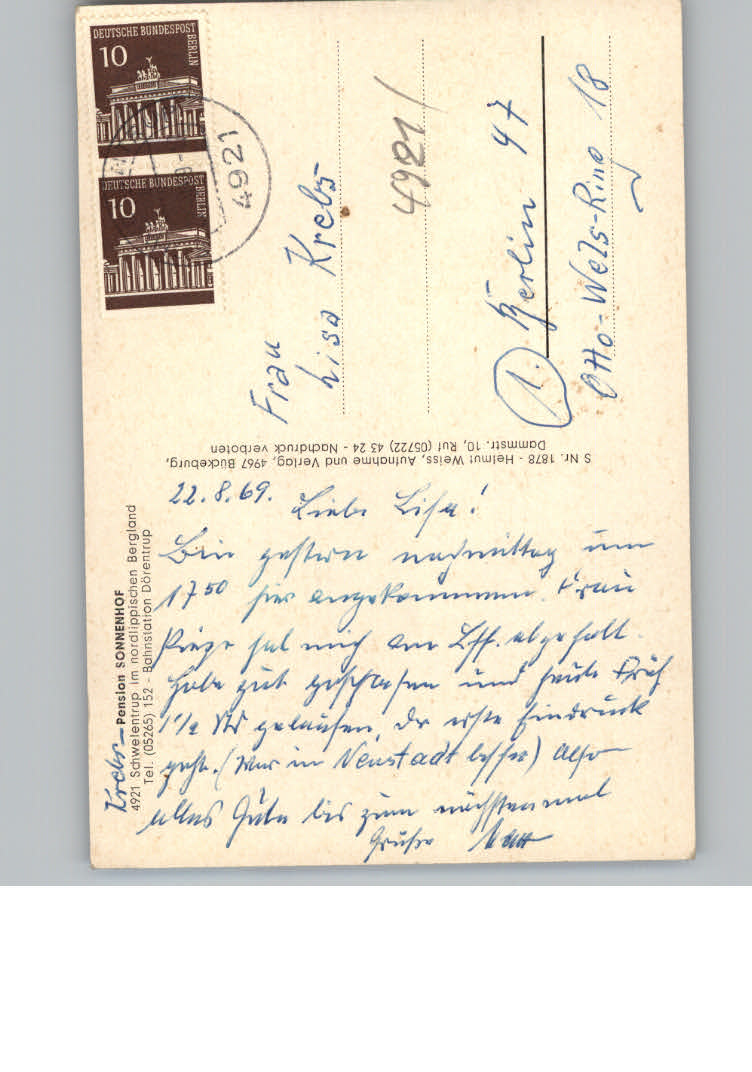 DEUTSCHE BUNDESPOST BERLIN
10
DEUTSCHE BUNDESPOST BERLIN
10
4921
4921
Frau
Lisa Krebs
1. Berlin 47
Otto-Wels-Ring 18
S Nr. 1878 - Helmut Weiss, Aufnahme und Verlag, 4967 Bückeburg,
Dammstr. 10, Ruf (05722) 43 24 - Nachdruck verboten
Krebs - Pension SONNENHOF
4921 Schwelentrup im nordlippischen Bergland
Tel. (05265) 152 - Bahnstation Dörentrup
22.8.69.
Liebe Lisa!
Bin gestern nachmittag um
17⁵⁰ hier angekommen. Frau
hat mich am abgeholt.
Habe gut geschlafen und heute Früh
1½ Std gelaufen. Der erste Eindruck
geht. (War in Neustadt besser) Also
alles Gute bis zum nächstenmal
Grüße